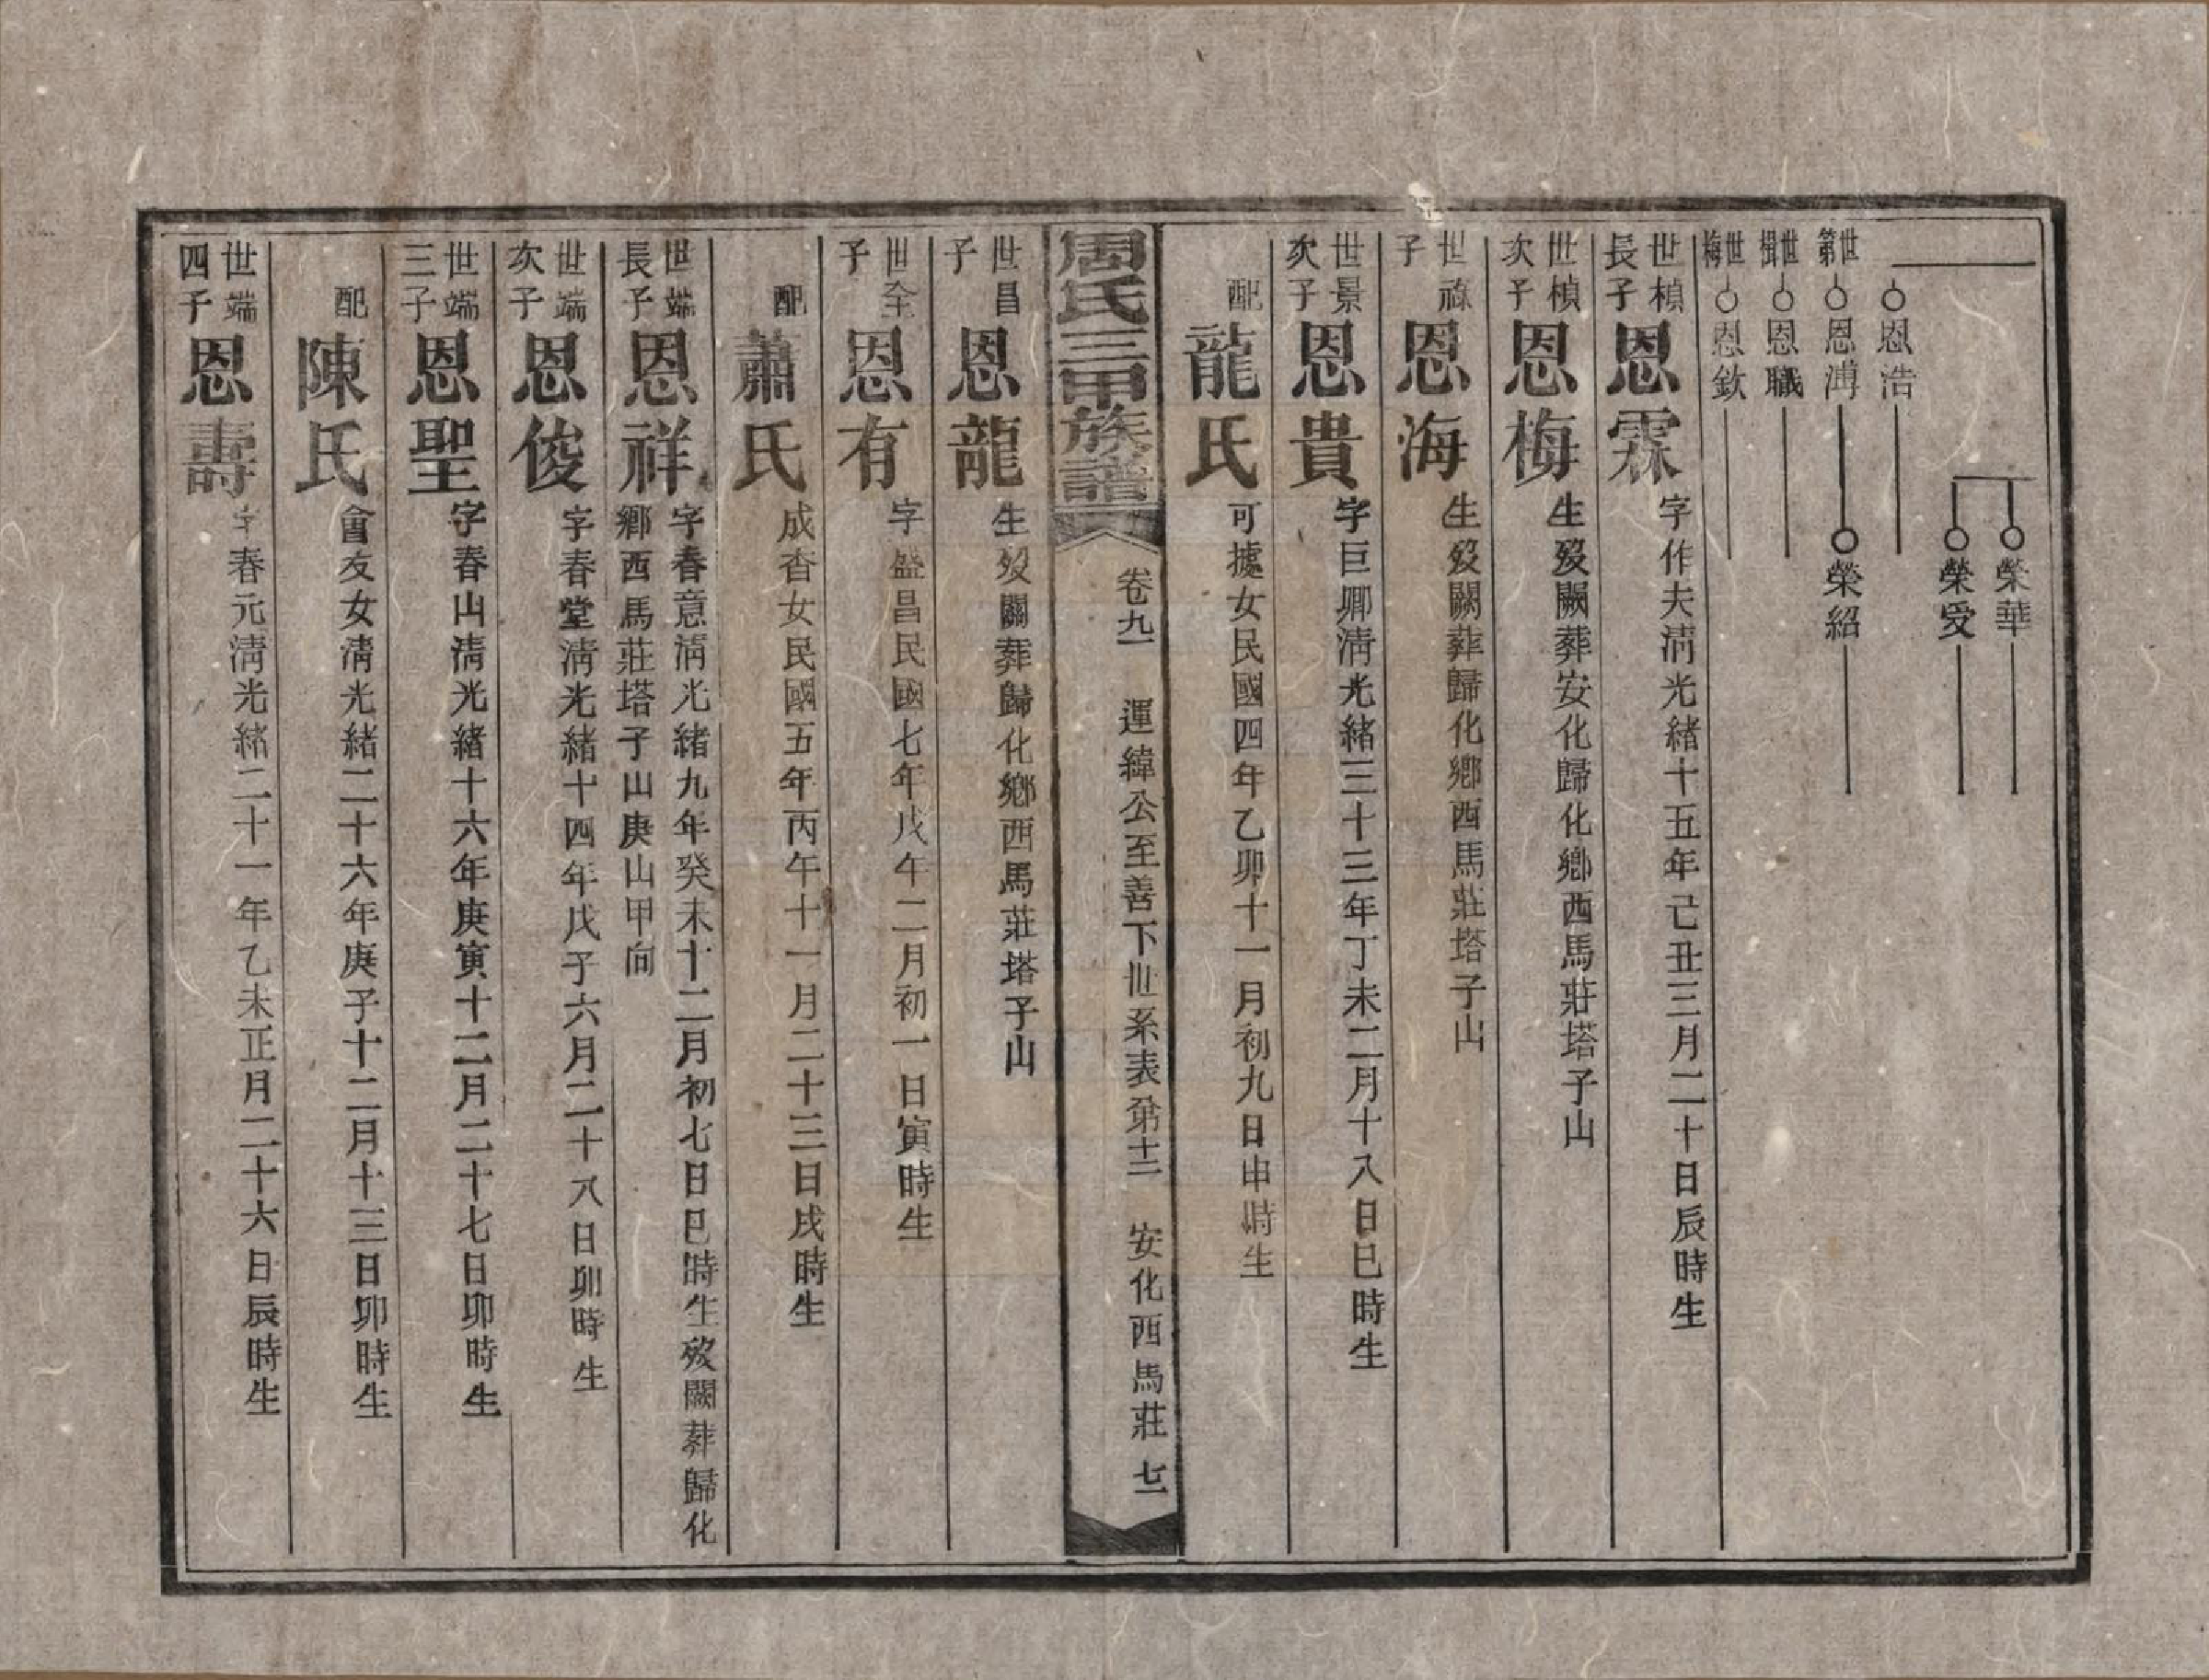 榮華
榮受
恩浩
世第 恩溥 榮紹
世楫 恩職
世梅 恩欽
世楨長子 恩霖 字作夫清光緒十五年己丑三月二十日辰時生
世楨次子 恩梅 生歿闕葬安化歸化鄉西馬莊塔子山
世祿子 恩海 生歿闕葬歸化鄉西馬莊塔子山
世景次子 恩貴 字巨卿清光緒三十三年丁未二月十八日巳時生
配 龍氏 可據女民國四年乙卯十一月初九日申時生
周氏三甲族譜 卷九 運緯公至善下世系表第十二 安化西馬莊 七二
世昌子 恩龍 生歿闕葬歸化鄉西馬莊塔子山
世全子 恩有 字盛昌民國七年戊午二月初一日寅時生
配 蕭氏 成杳女民國五年丙午十一月二十三日戌時生
世端長子 恩祥 字春意清光緒九年癸未十二月初七日巳時生歿闕葬歸化
鄉西馬莊塔子山庚山甲向
世端次子 恩俊 字春堂清光緒十四年戊子六月二十八日卯時生
世端三子 恩聖 字春山清光緒十六年庚寅十二月二十七日卯時生
配 陳氏 會友女清光緒二十六年庚子十二月十三日卯時生
世端四子 恩壽 字春元清光緒二十一年乙未正月二十六日辰時生